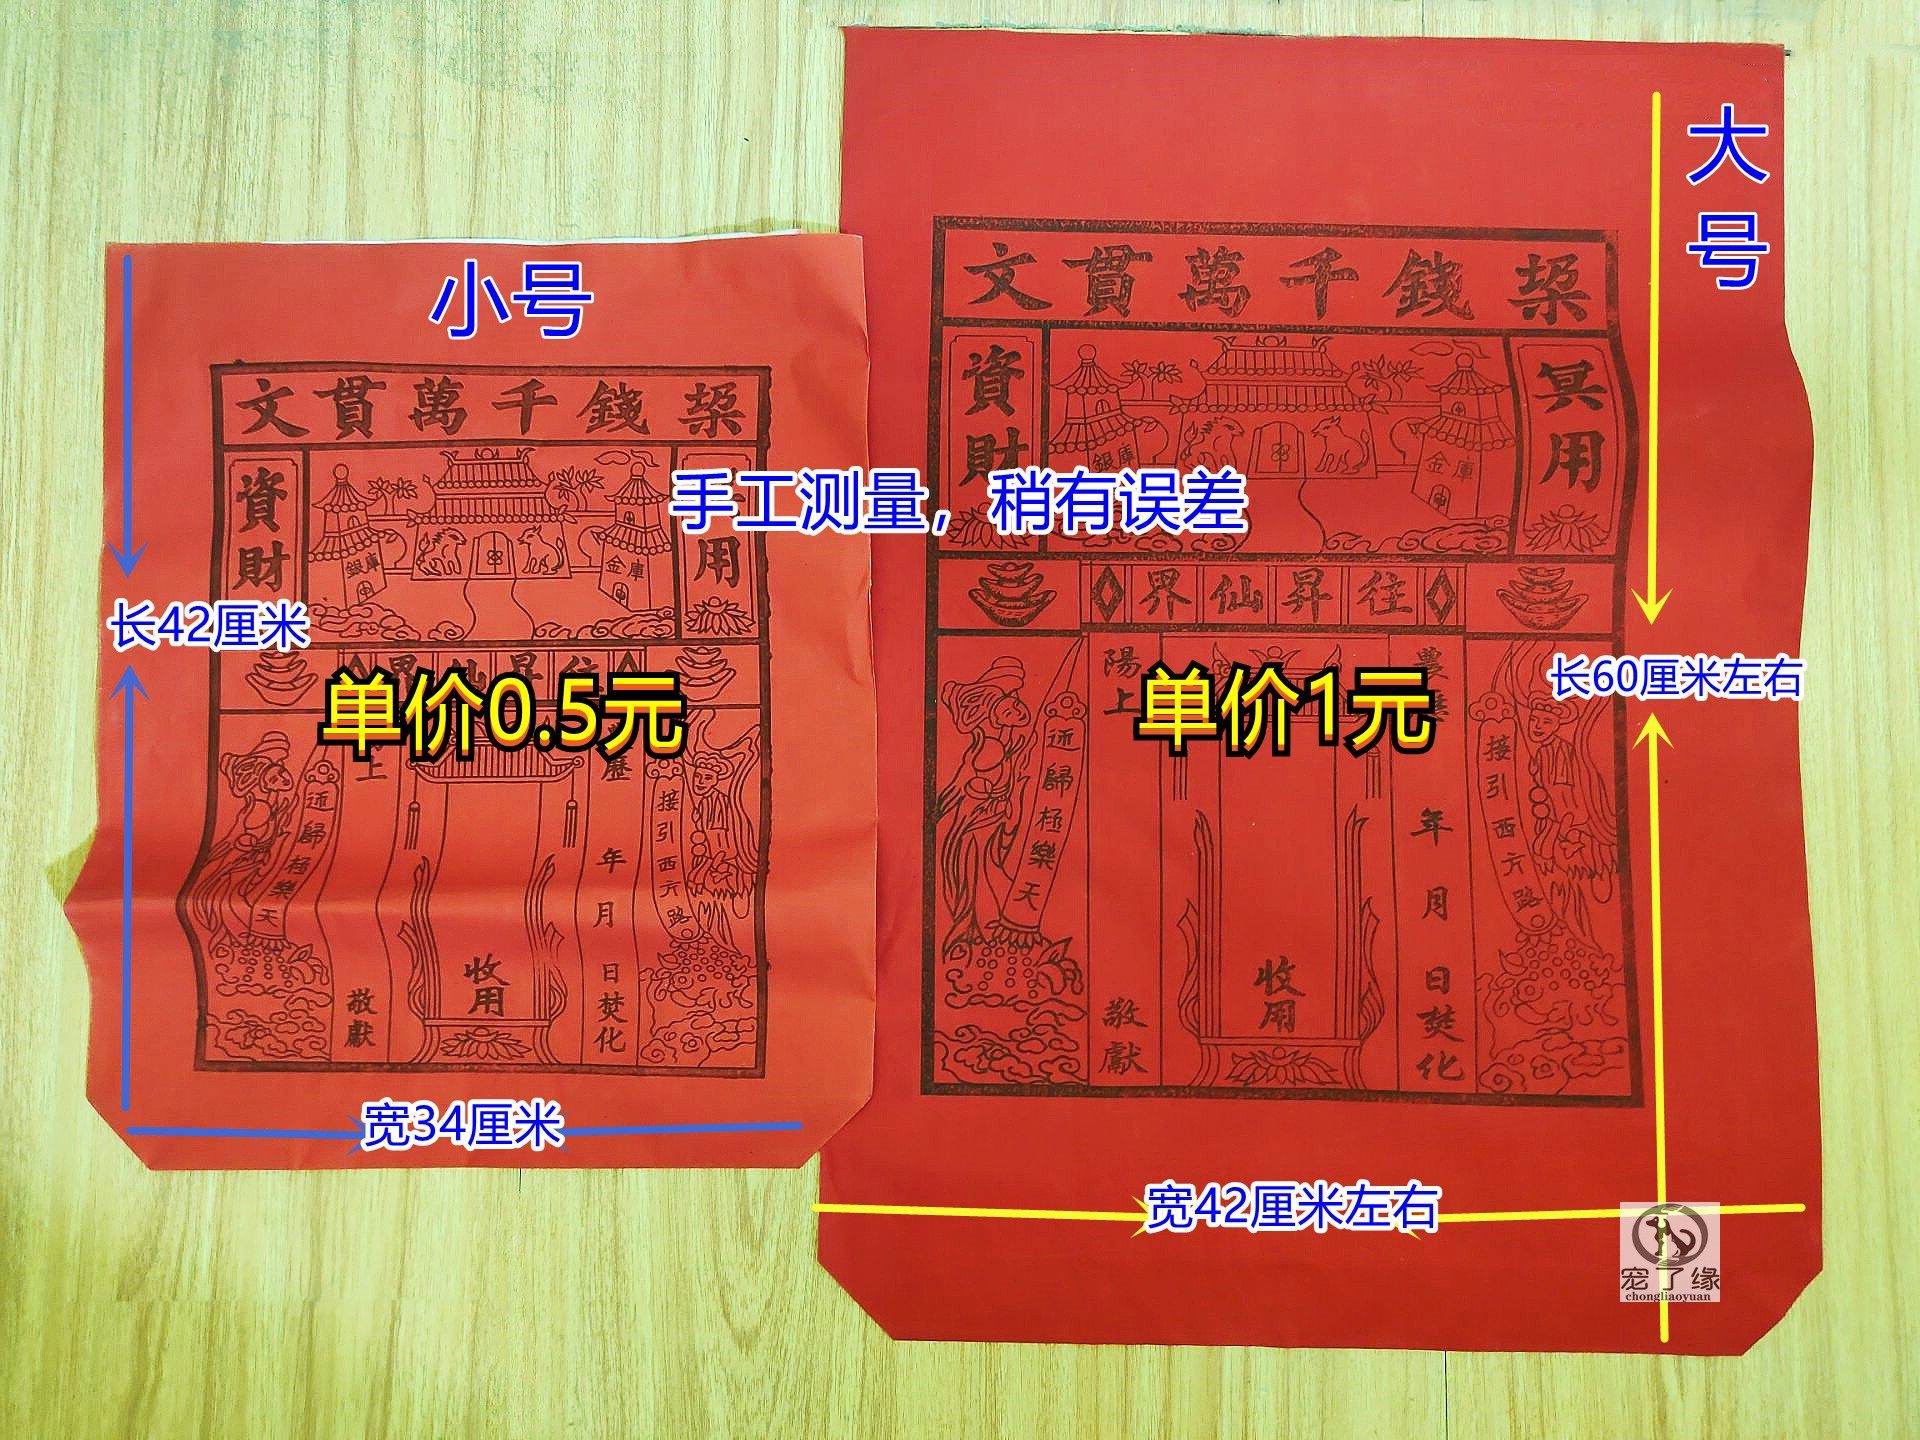 小号
錢千萬貫文
用
資財
金庫
銀庫
上
敬獻
收用
曆 年 月 日焚化
接引西方路
歸極樂天
长42厘米
单价0.5元
宽34厘米
手工测量，稍有误差
大号
錢千萬貫文
冥用
資財
金庫
銀庫
往昇仙界
接引西方路
年 月 日焚化
收用
陽上 敬獻
歸極樂天
单价1元
长60厘米左右
宽42厘米左右
宠了缘
chongliaoyuan